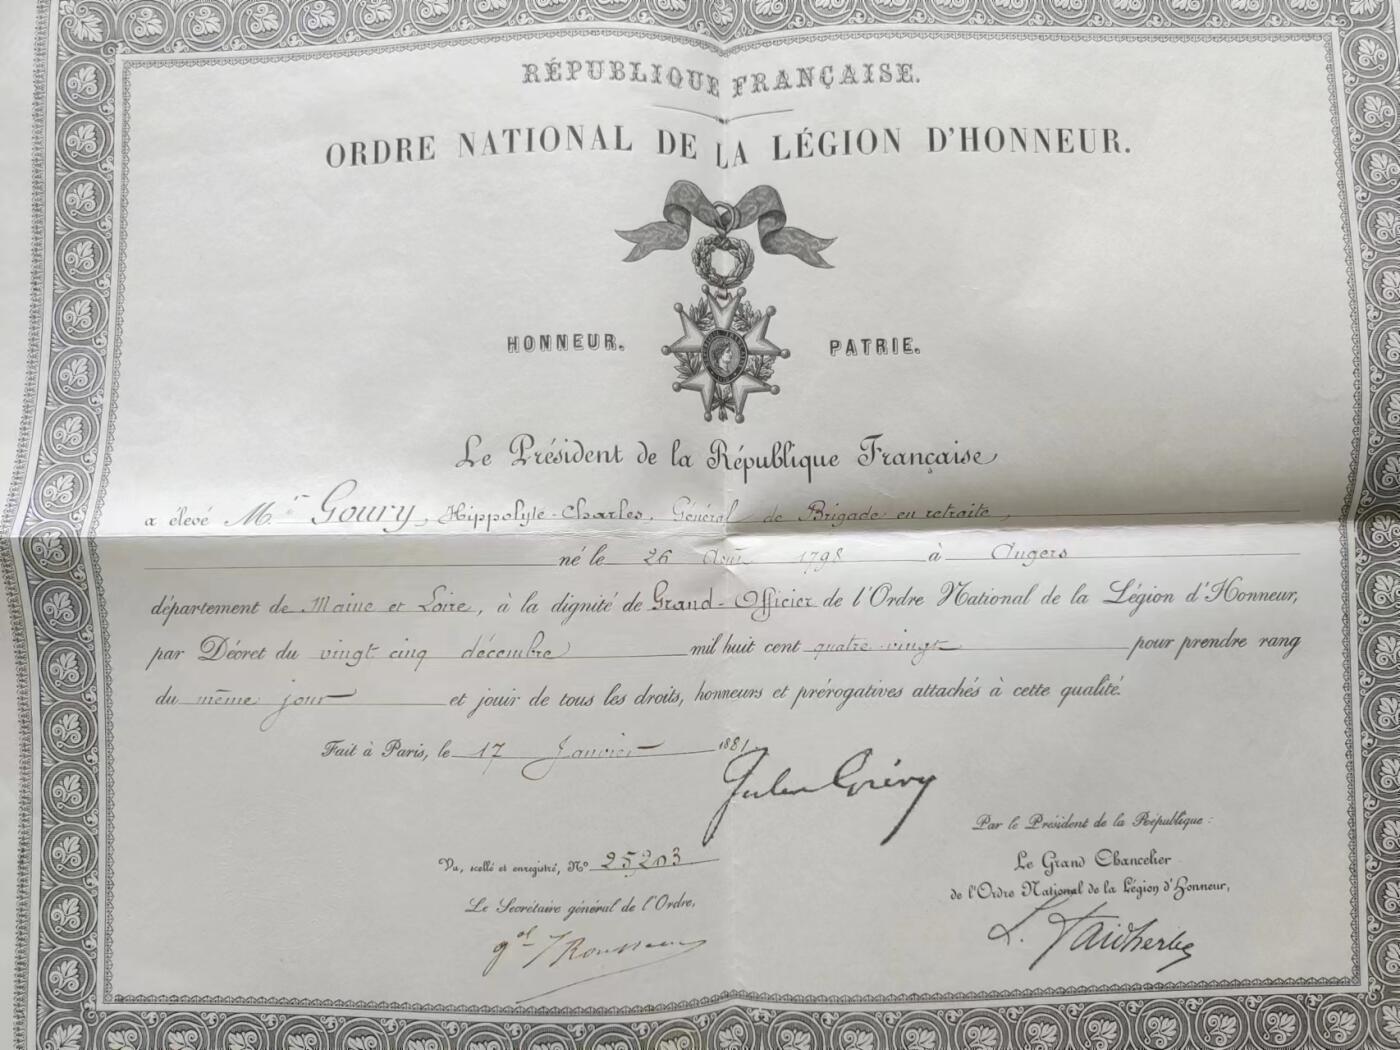 RÉPUBLIQUE FRANÇAISE.
ORDRE NATIONAL DE LA LÉGION D'HONNEUR.
HONNEUR. PATRIE.
Le Président de la République Française
a élevé M. Goury, Hippolyte-Charles, Général de Brigade en retraite,
né le 26 Août 1798 à Angers
département de Maine et Loire, à la dignité de Grand-Officier de l'Ordre National de la Légion d'Honneur,
par Décret du vingt cinq décembre mil huit cent quatre vingt pour prendre rang
du même jour et jouir de tous les droits, honneurs et prérogatives attachés à cette qualité.
Fait à Paris, le 17 Janvier 1881
Jules Grévy
Par le Président de la République :
Vu, scellé et enregistré, N° 25,203
Le Grand Chancelier
de l'Ordre National de la Légion d'Honneur,
Le Secrétaire général de l'Ordre,
L. Faidherbe
gal Rousseau